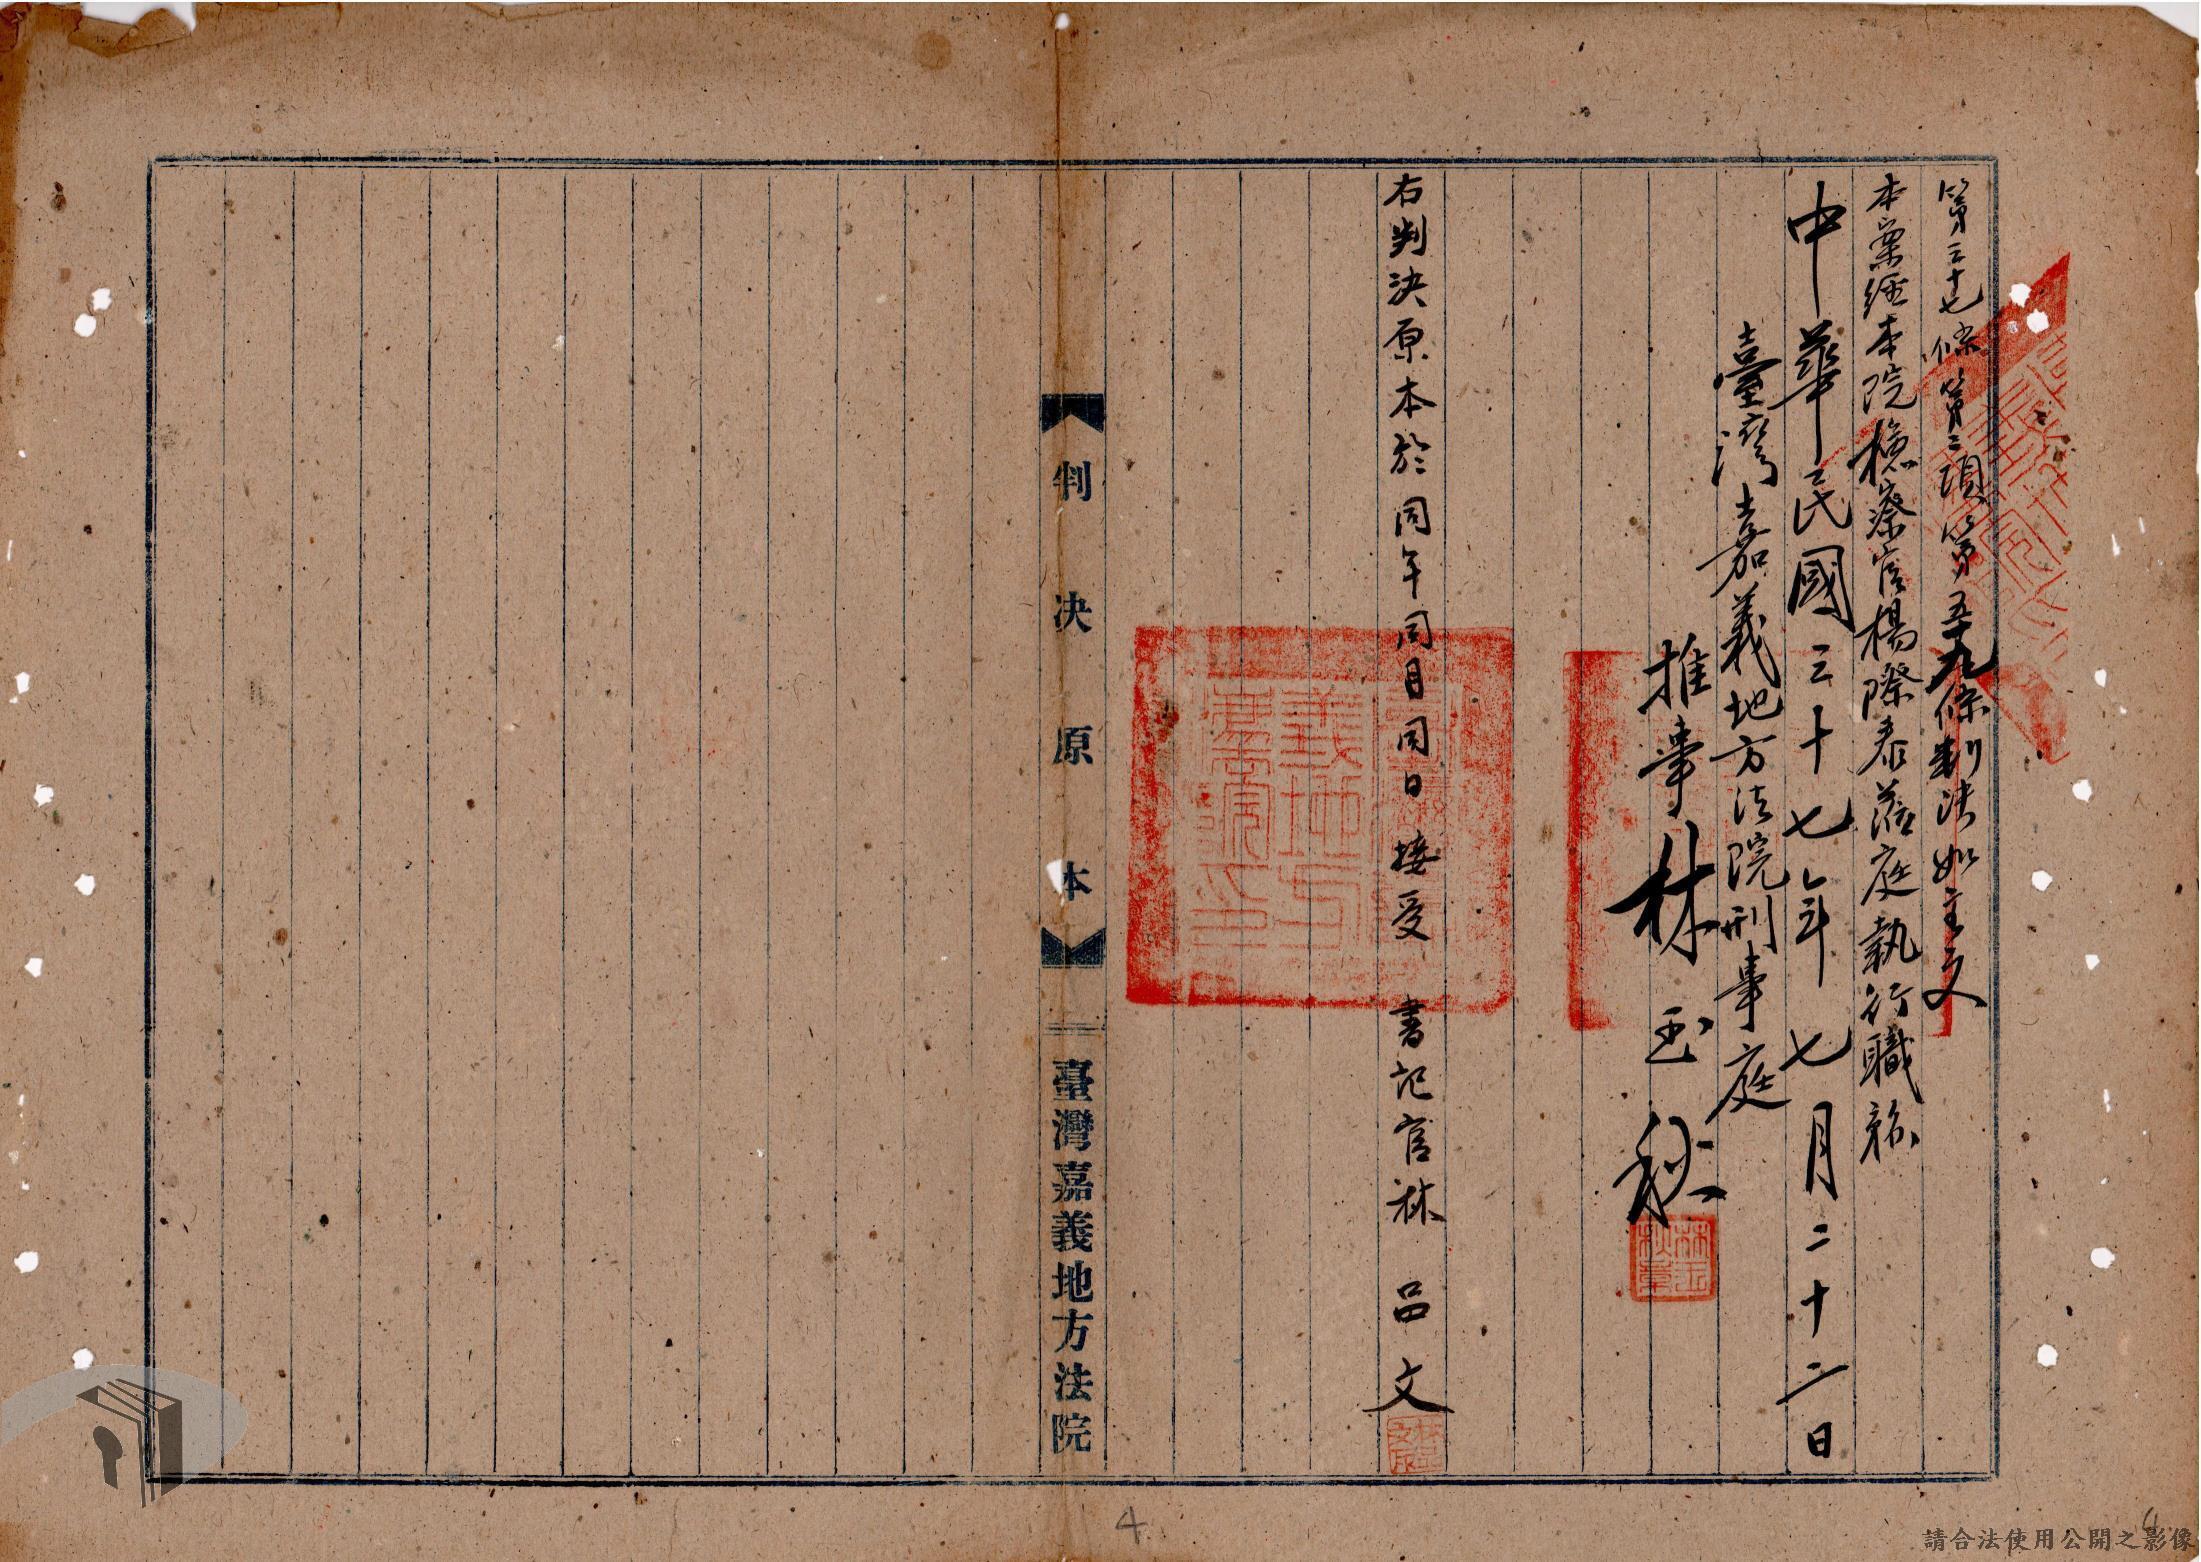 第三十七條第二項第五十九條判決如主文
本案經本院檢察官楊際泰蒞庭執行職務
中華民國三十七年七月二十二日
臺灣嘉義地方法院刑事庭
推事林玉秋
林玉秋章
右判決原本於同年同月同日接受 書記官林呂文
臺灣嘉義地方法院印
判決原本
臺灣嘉義地方法院
4
請合法使用公開之影像